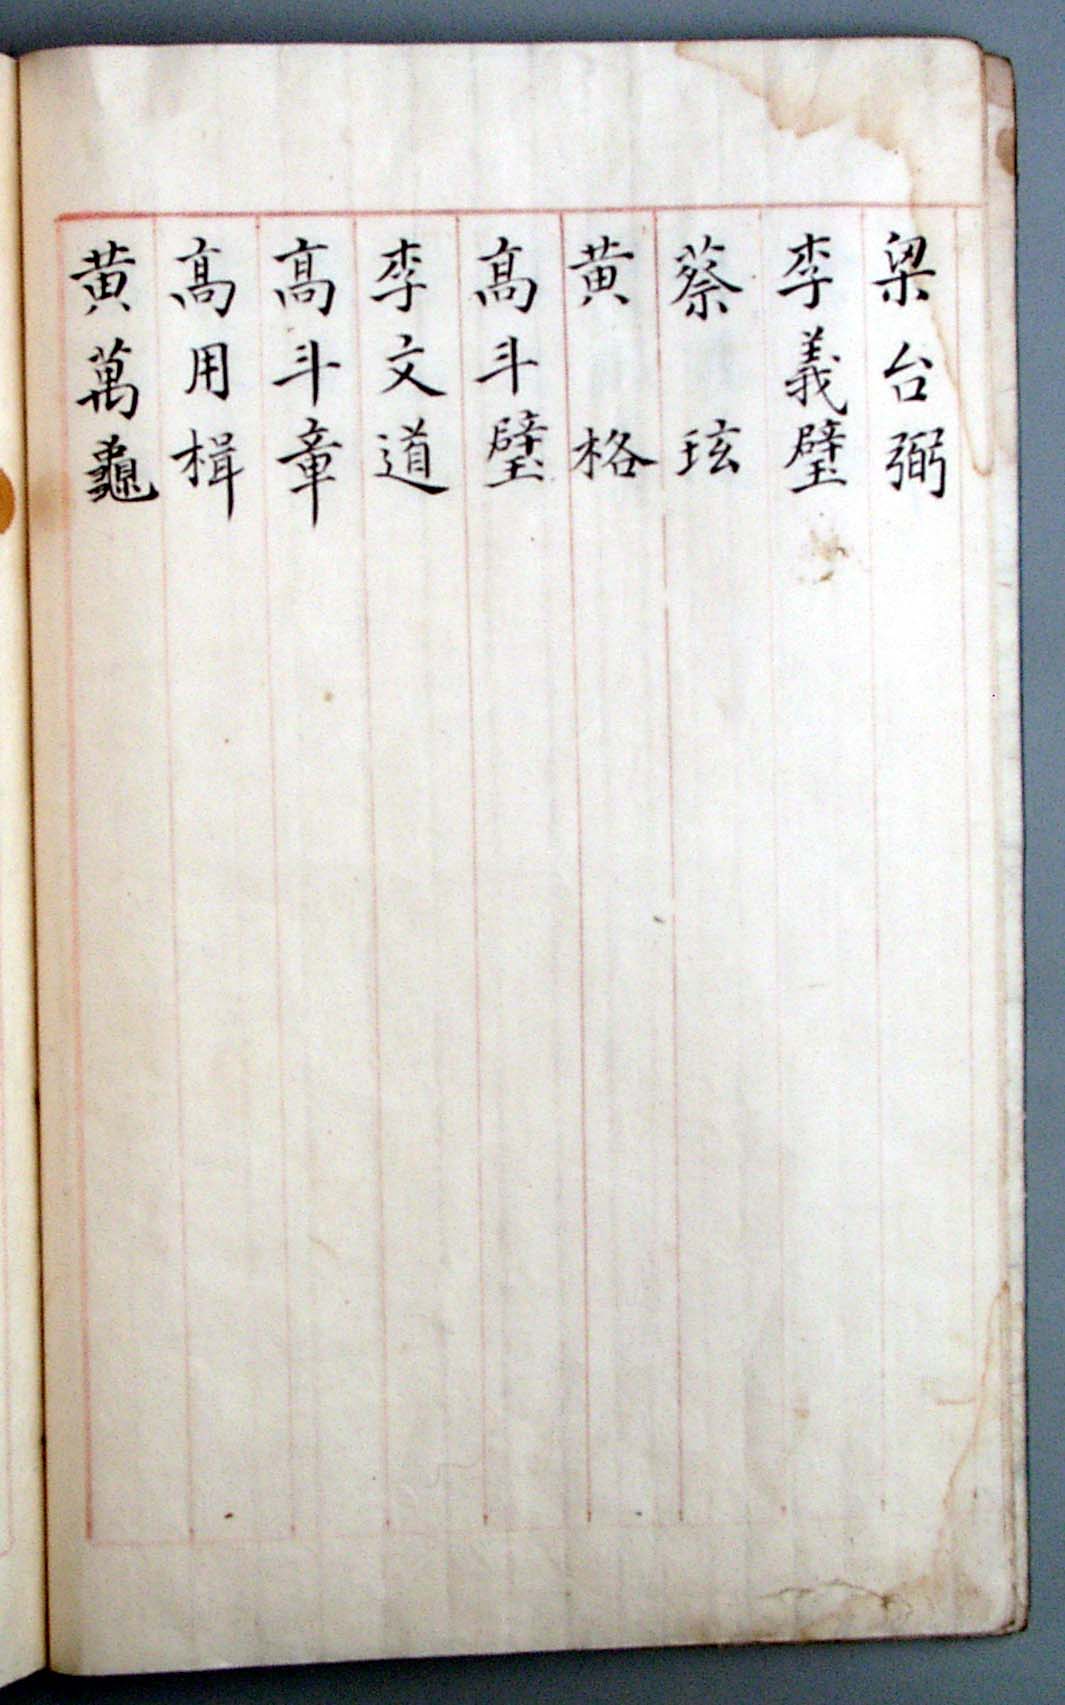 梁台弼
李義璧
蔡玹
黃格
髙斗璧
李文道
髙斗章
髙用楫
黃萬龜